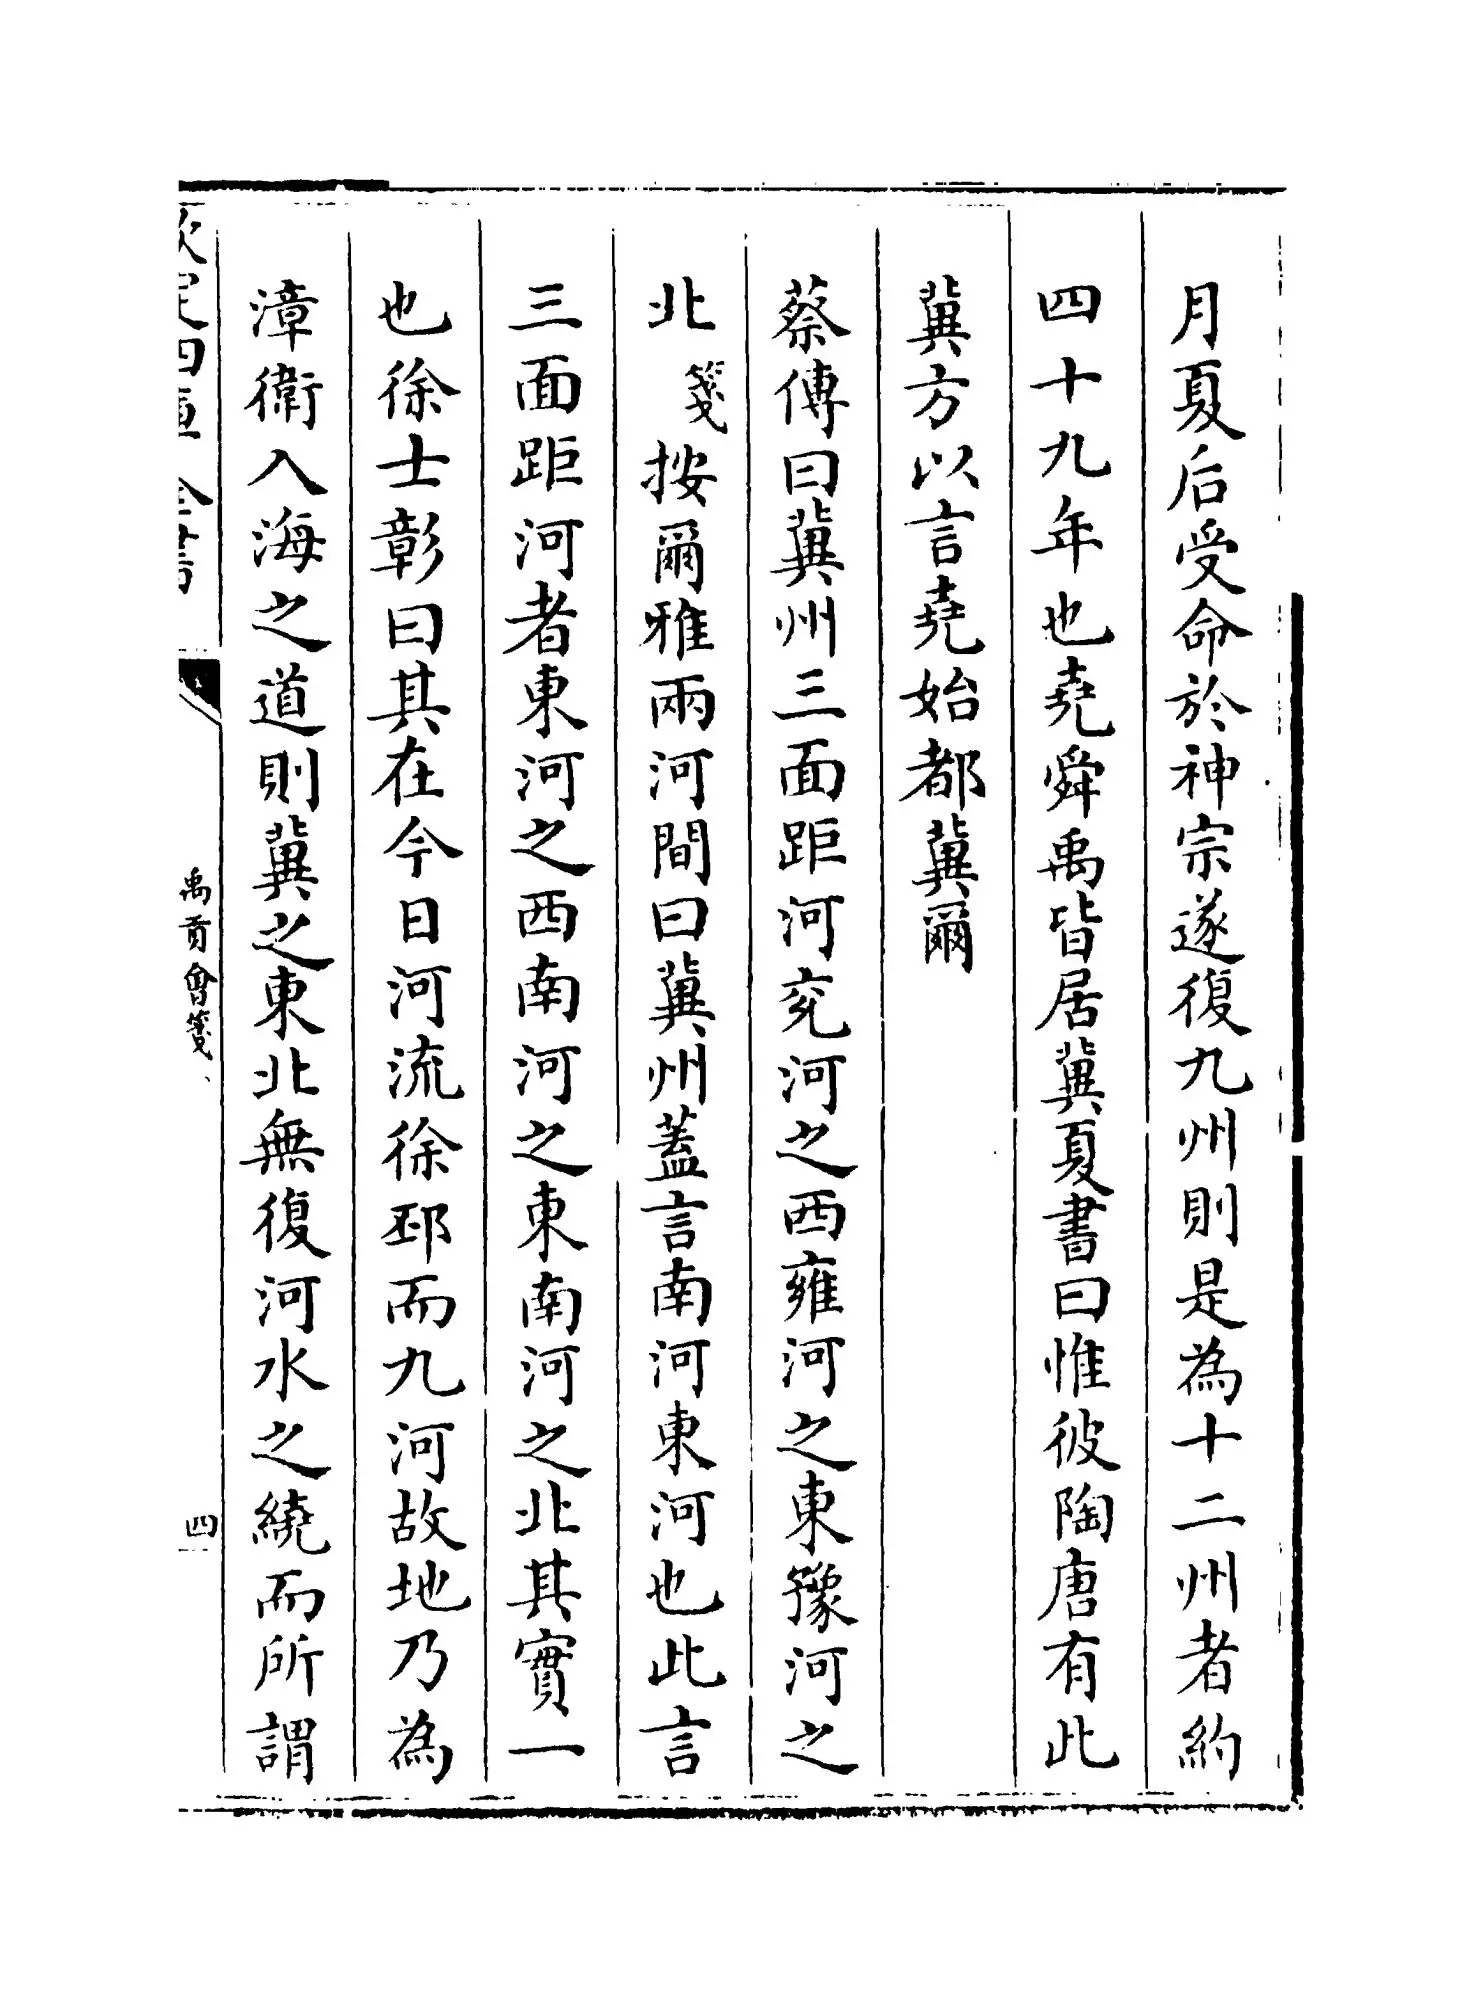 月夏后受命於神宗遂復九州則是為十二州者約
四十九年也堯舜禹皆居冀夏書曰惟彼陶唐有此
冀方以言堯始都冀爾
蔡傳曰冀州三面距河兖河之西雍河之東豫河之
北 箋按爾雅兩河間曰冀州蓋言南河東河也此言
三面距河者東河之西南河之東南河之北其實一
也徐士彰曰其在今日河流徐邳而九河故地乃為
漳衛入海之道則冀之東北無復河水之繞而所謂
欽定四庫全書
禹貢會箋
四